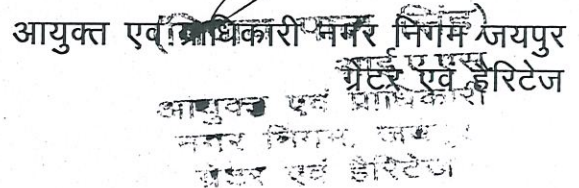 आयुक्त एवं प्राधिकारी नगर निगम जयपुर
आई ए एस
ग्रेटर एवं हैरिटेज
आयुक्त एवं प्राधिकारी
नगर निगम, जयपुर
ग्रेटर एवं हैरिटेज